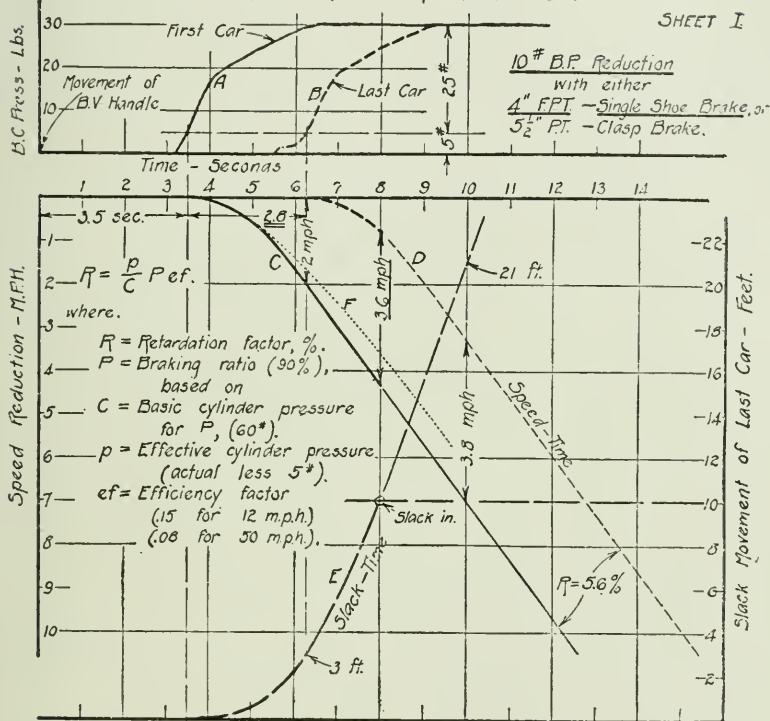 SHEET I
B.C Press - Lbs.
30
20
10
First Car
A
Movement of
B.V Handle
B
Last Car
25#
5#
10# B.P. Reduction
with either
4" F.P.T. - Single Shoe Brake, or
5 1/2" P.T. - Clasp Brake.
Time - Seconds
1 2 3 4 5 6 7 8 9 10 11 12 13 14
3.5 sec.
2.8
2 mph
3.6 mph
3.8 mph
C
F
D
21 ft.
Speed-Time
Speed Reduction - M.P.H.
1
2
3
4
5
6
7
8
9
10
R = p/C P ef.
where.
R = Retardation factor, %.
P = Braking ratio (90%),
based on
C = Basic cylinder pressure
for P, (60#).
p = Effective cylinder pressure
(actual less 5#).
ef = Efficiency factor
(.15 for 12 m.p.h.)
(.08 for 50 m.p.h.).
Slack in.
E
Slack-Time
3 ft.
R=5.6%
Slack Movement of Last Car - Feet.
22
20
18
16
14
12
10
8
6
4
2